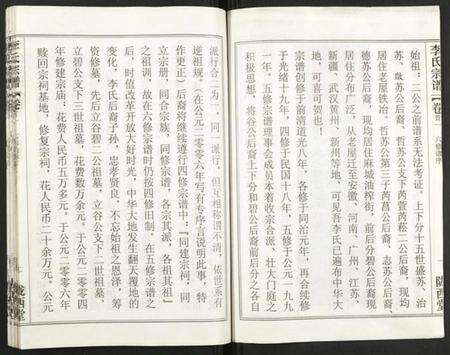 李氏宗谱【卷首】 六修谱序
一 陇西堂
始祖：二公之前谱系无法考证。上下分十五世盛苏、治
苏、敖苏公后裔，哲苏公支下芮萱芮菘二公后裔，现均
居住老屋铁冶，哲苏公第三子芮菖公后裔，志苏公后裔、
德苏公后裔，现均居住麻城油榨街，前后分碧公后裔现
居住分布广泛，从老屋迁至安徽，河南、广州、江苏，
新疆，武汉黄州，新州等地，可见吾李氏已遍布中华大
地，可喜可贺也！
宗谱创修于前清道光八年，各修于同治元年，再合续修
于光绪十九年，四修于民国十八年，五修于公元一九九
六年。五修宗谱理事会成员本着收宗合派、壮大门庭之
积极思想，将谷公后裔上下分和碧公后裔前后分之各自
派行合二为一，同一派行，但互相称谓不清，依世系有
逆祖规。（在公元二〇〇六年写有专序言说明此事，特
作更正）后裔将继续遵行四修宗谱中：『同建宗祠，同
立宗册，同合宗族，同修宗谱，各宗其派，各祖其祖』
之祖训，故在六修宗谱时仍按四修旧制。在五修宗谱之
后，时值改革开放大好时光，中华大地发生翻天覆地的
变化，李氏后裔子孙，忠孝贤良，不忘始祖之恩泽，筹
资修墓，先后立谷碧二公祖墓，立谷公支下二世祖墓，
立碧公支下三世祖墓，花费数万余元。于公元二〇〇四
年修建宗庙：花费人民币五万多元。于公元二〇〇六年
赎回宗祠基地，修复宗祠，花人民币二十余万元。公元